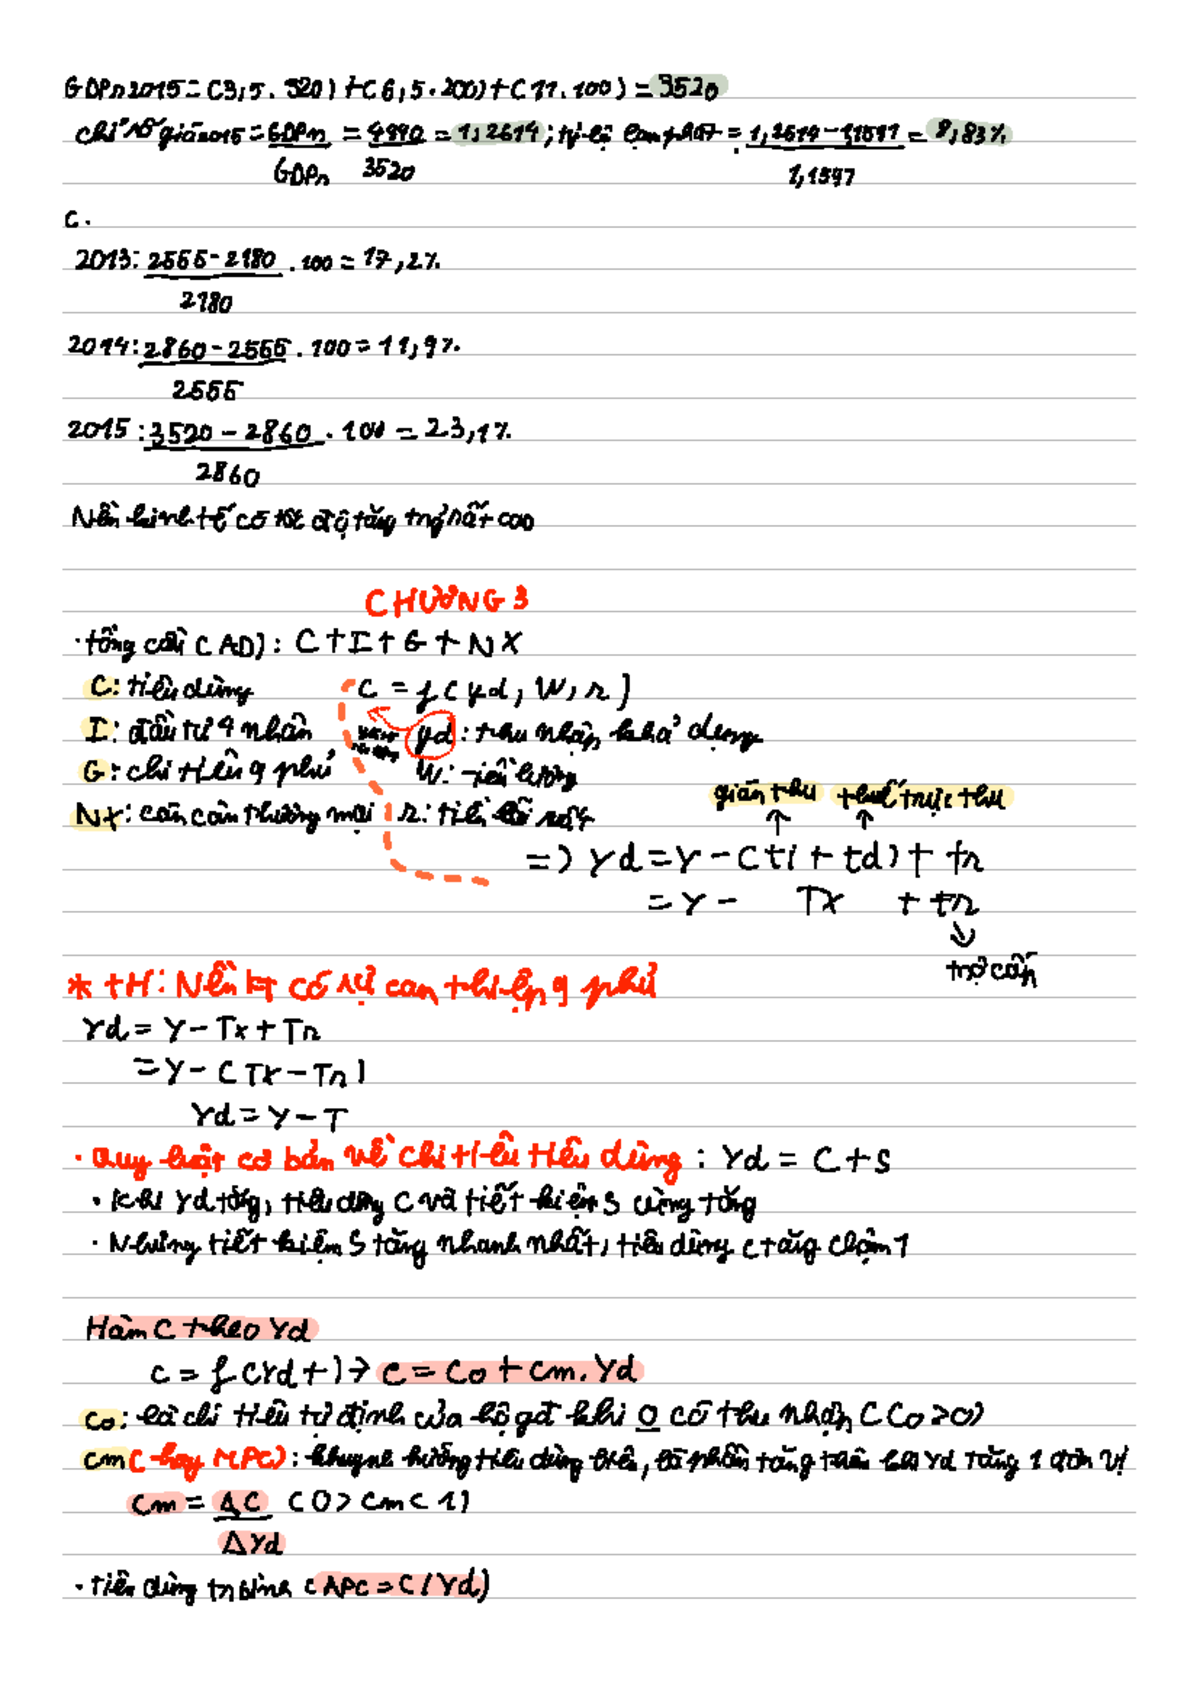 GDPn2015 = (3,5 . 320) + (6,5 . 200) + (11 . 100) = 3520
chỉ số giá2015 = GDPn / GDPn = 4440 / 3520 = 1,2614 ; tỷ lệ lạm phát =
1,2614 - 1,1597 / 1,1597 = 8,83%
C.
2013: 2555 - 2180 / 2180 . 100 = 17,2%
2014: 2860 - 2555 / 2555 . 100 = 11,9%
2015: 3520 - 2860 / 2860 . 100 = 23,1%
Nền kinh tế có tốc độ tăng trưởng rất cao
CHƯƠNG 3
· tổng cầu (AD): C + I + G + NX
C: tiêu dùng C = f(yd, W, r)
I: đầu tư 4 nhân yd: thu nhập khả dụng
G: chi tiêu 9 phủ W: tiền lương
gián thu thuế trực thu
NX: cán cân thương mại r: tiền lãi suất
=> Yd = Y - (ti + td) + tr
= Y - Tx + tr
trợ cấp
* TH: Nền kt có sự can thiệp 9 phủ
Yd = Y - Tx + Tr
= Y - (Tx - Tr)
Yd = Y - T
· Quy luật cơ bản về chi tiêu tiêu dùng : Yd = C + S
· Khi Yd tăng, tiêu dùng C và tiết kiệm S cùng tăng
· Nhưng tiết kiệm S tăng nhanh nhất, tiêu dùng C tăng chậm 1
Hàm C theo Yd
C = f(Yd+) → C = Co + Cm.Yd
Co: là chi tiêu tự định của hộ gđ khi 0 có thu nhập (Co > 0)
Cm (hay MPC): khuynh hướng tiêu dùng biên, là phần tăng thêm khi Yd tăng 1 đơn vị
Cm = ΔC / ΔYd (0 > Cm < 1)
· Tiêu dùng tr bình (APC = C / Yd)